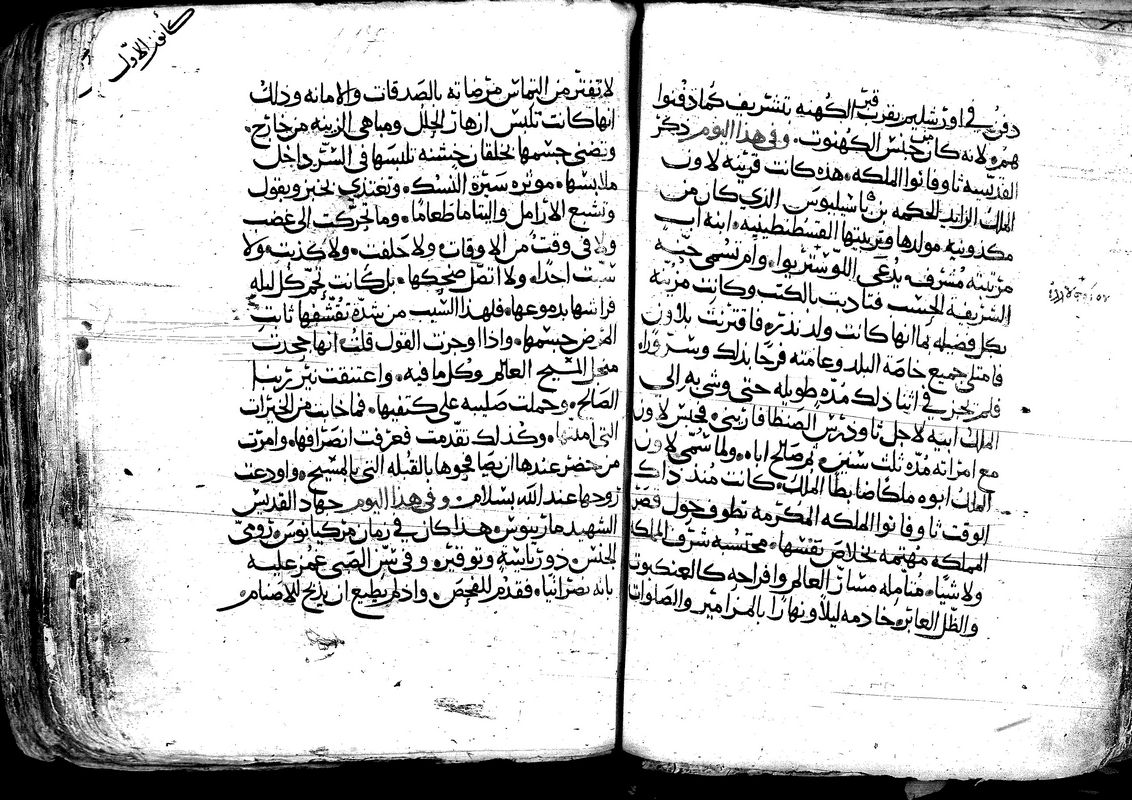 دفن في اورشليم بقرب قبر الكهنه بتشريف كما دفنوا
هم لانه كان من جنس الكهنوت. وفي هذا اليوم ذكر
القديسه ثاوفانوا الملكه. هذه كانت قرينه لاون
الملك الزايد الحكمه بن باسيليوس الذي كان من
مكدونيه مولدها وتربيتها القسطنطينيه. ابنه اب
مرتبته مشرف يدعى اللوسترىوا. وام تسمى حنه
الشريفه الجنس فتادبت بالكتب وكانت مزينه
بكل فضيله بما انها كانت ولد نذره فاقترنت بلاون
فامتلى جميع خاصة البلد وعامته فرحا بذلك وسرورا.
فلم تجز في اثنا ذلك مده طويله حتى وشي به الى
الملك ابيه لاجل ثاودرس الصنطافارىني. فحبس لاون
مع امراته مدة ثلث سنين. ثم صالح اباه. ولما سمى لاون
الملك ابوه ملكا ضابطا الملك. كانت منذ ذاك
الوقت ثاوفانوا الملكه المكرمه تطوف حول قصر
المملكه مهتمه بخلاص نفسها. محتسبه شرف الملكه
ولا شيا. متامله مسار العالم وافراحه كالعنكبوت
والظل العابر. خادمه ليلا ونهارا بالمزامير والصلوات
كانون الاول
لا تفتر من التماس مرضاته بالصدقات والامانه وذلك
انها كانت تلبس ازهار الحلل ومباهي الزينه من خارج.
وتضني جسمها بخلقان خشنه تلبسها في الستر داخل
ملابسها. موثره سيرة النسك. وتغتذي بخبز وبقول
وتشبع الارامل واليتاما طعاما. وما تحركت الى غضب
ولا في وقت من الاوقات ولا حلفت. ولا كذبت ولا
سبت احدا. ولا اتصل ضحكها. بل كانت تحم كل ليله
فراشها بدموعها. فلهذا السبب من شدة تقشفها ثابت
المرض جسمها. واذا اوجزت القول قلت انها جحدت
من اجل المسيح العالم وكل ما فيه. واعتنقت نير ربنا
الصالح. وحملت صليبه على كتفيها. فما خابت من الخيرات
التي املتها. وكذلك تقدمت فعرفت انصرافها. وامرت
من حضر عندها ان يصافحوها بالقبله التي بالمسيح. واودعت
روحها عند الله بسلام. وفي هذا اليوم جهاد القديس
الشهيد مارينوس. هذا كان في زمان مركيانوس. رومي
الجنس ذو رئاسه وتوقير. وفي سن الصبى غمز عليه
بانه نصرانيا. فقدم للفحص. واذ لم يطيع ان يذبح للاصنام